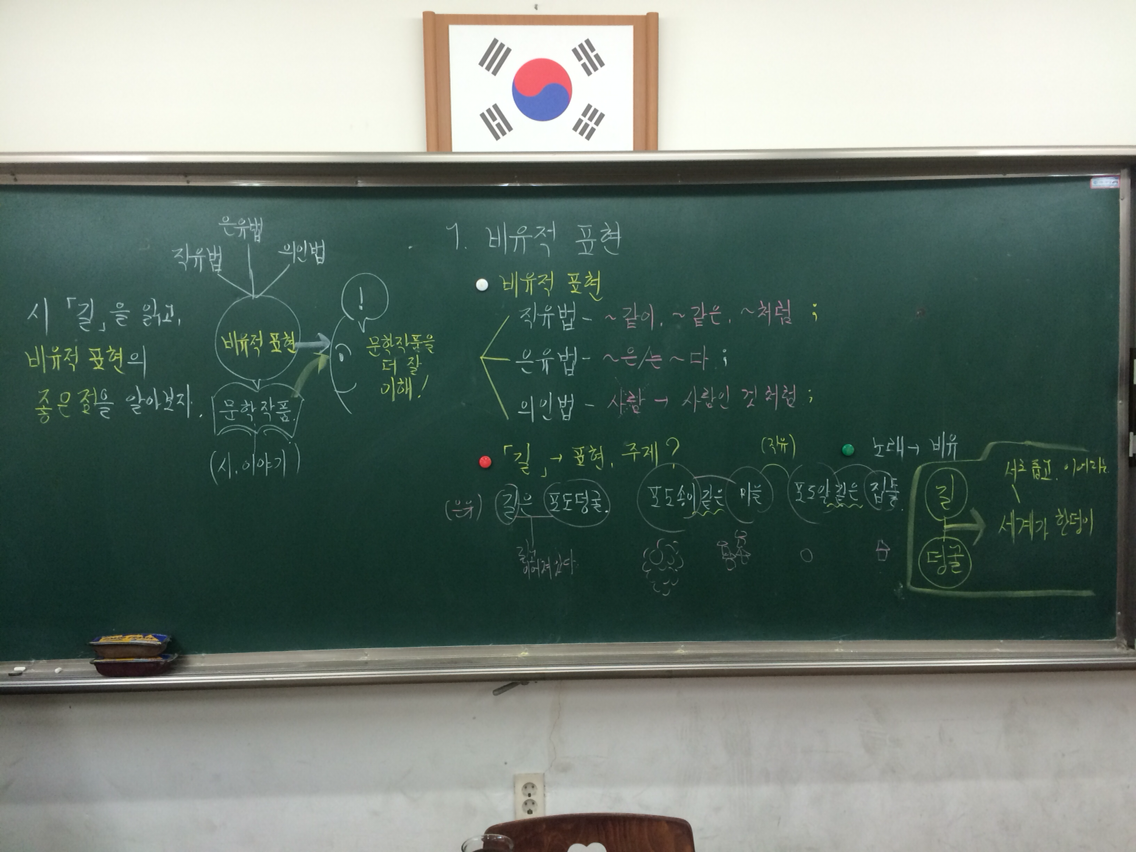 은유법
직유법 의인법
시 「길」을 읽고,
비유적 표현의
좋은 점을 알아보자.
비유적 표현
!
문학작품을
더 잘
이해!
문학작품
(시, 이야기)
1. 비유적 표현
비유적 표현
직유법 - ~같이, ~같은, ~처럼 ;
은유법 - ~은/는 ~다 ;
의인법 - 사람 → 사람인 것처럼 ;
「길」 → 표현, 주제?
(직유)
노래 → 비유
(은유) 길은 포도덩굴. 포도송이 같은 마을 포도알 같은 집들.
길
덩굴
서로 돕고, 이어라는
세계가 한덩이